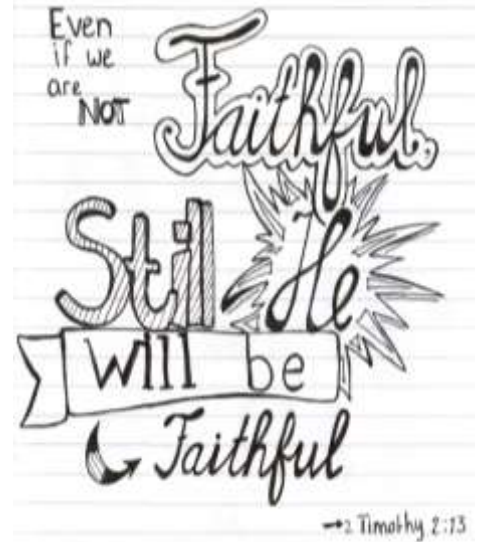 Even
if we
are
NOT
Faithful,
Still He
will be
Faithful
→2 Timothy 2:13